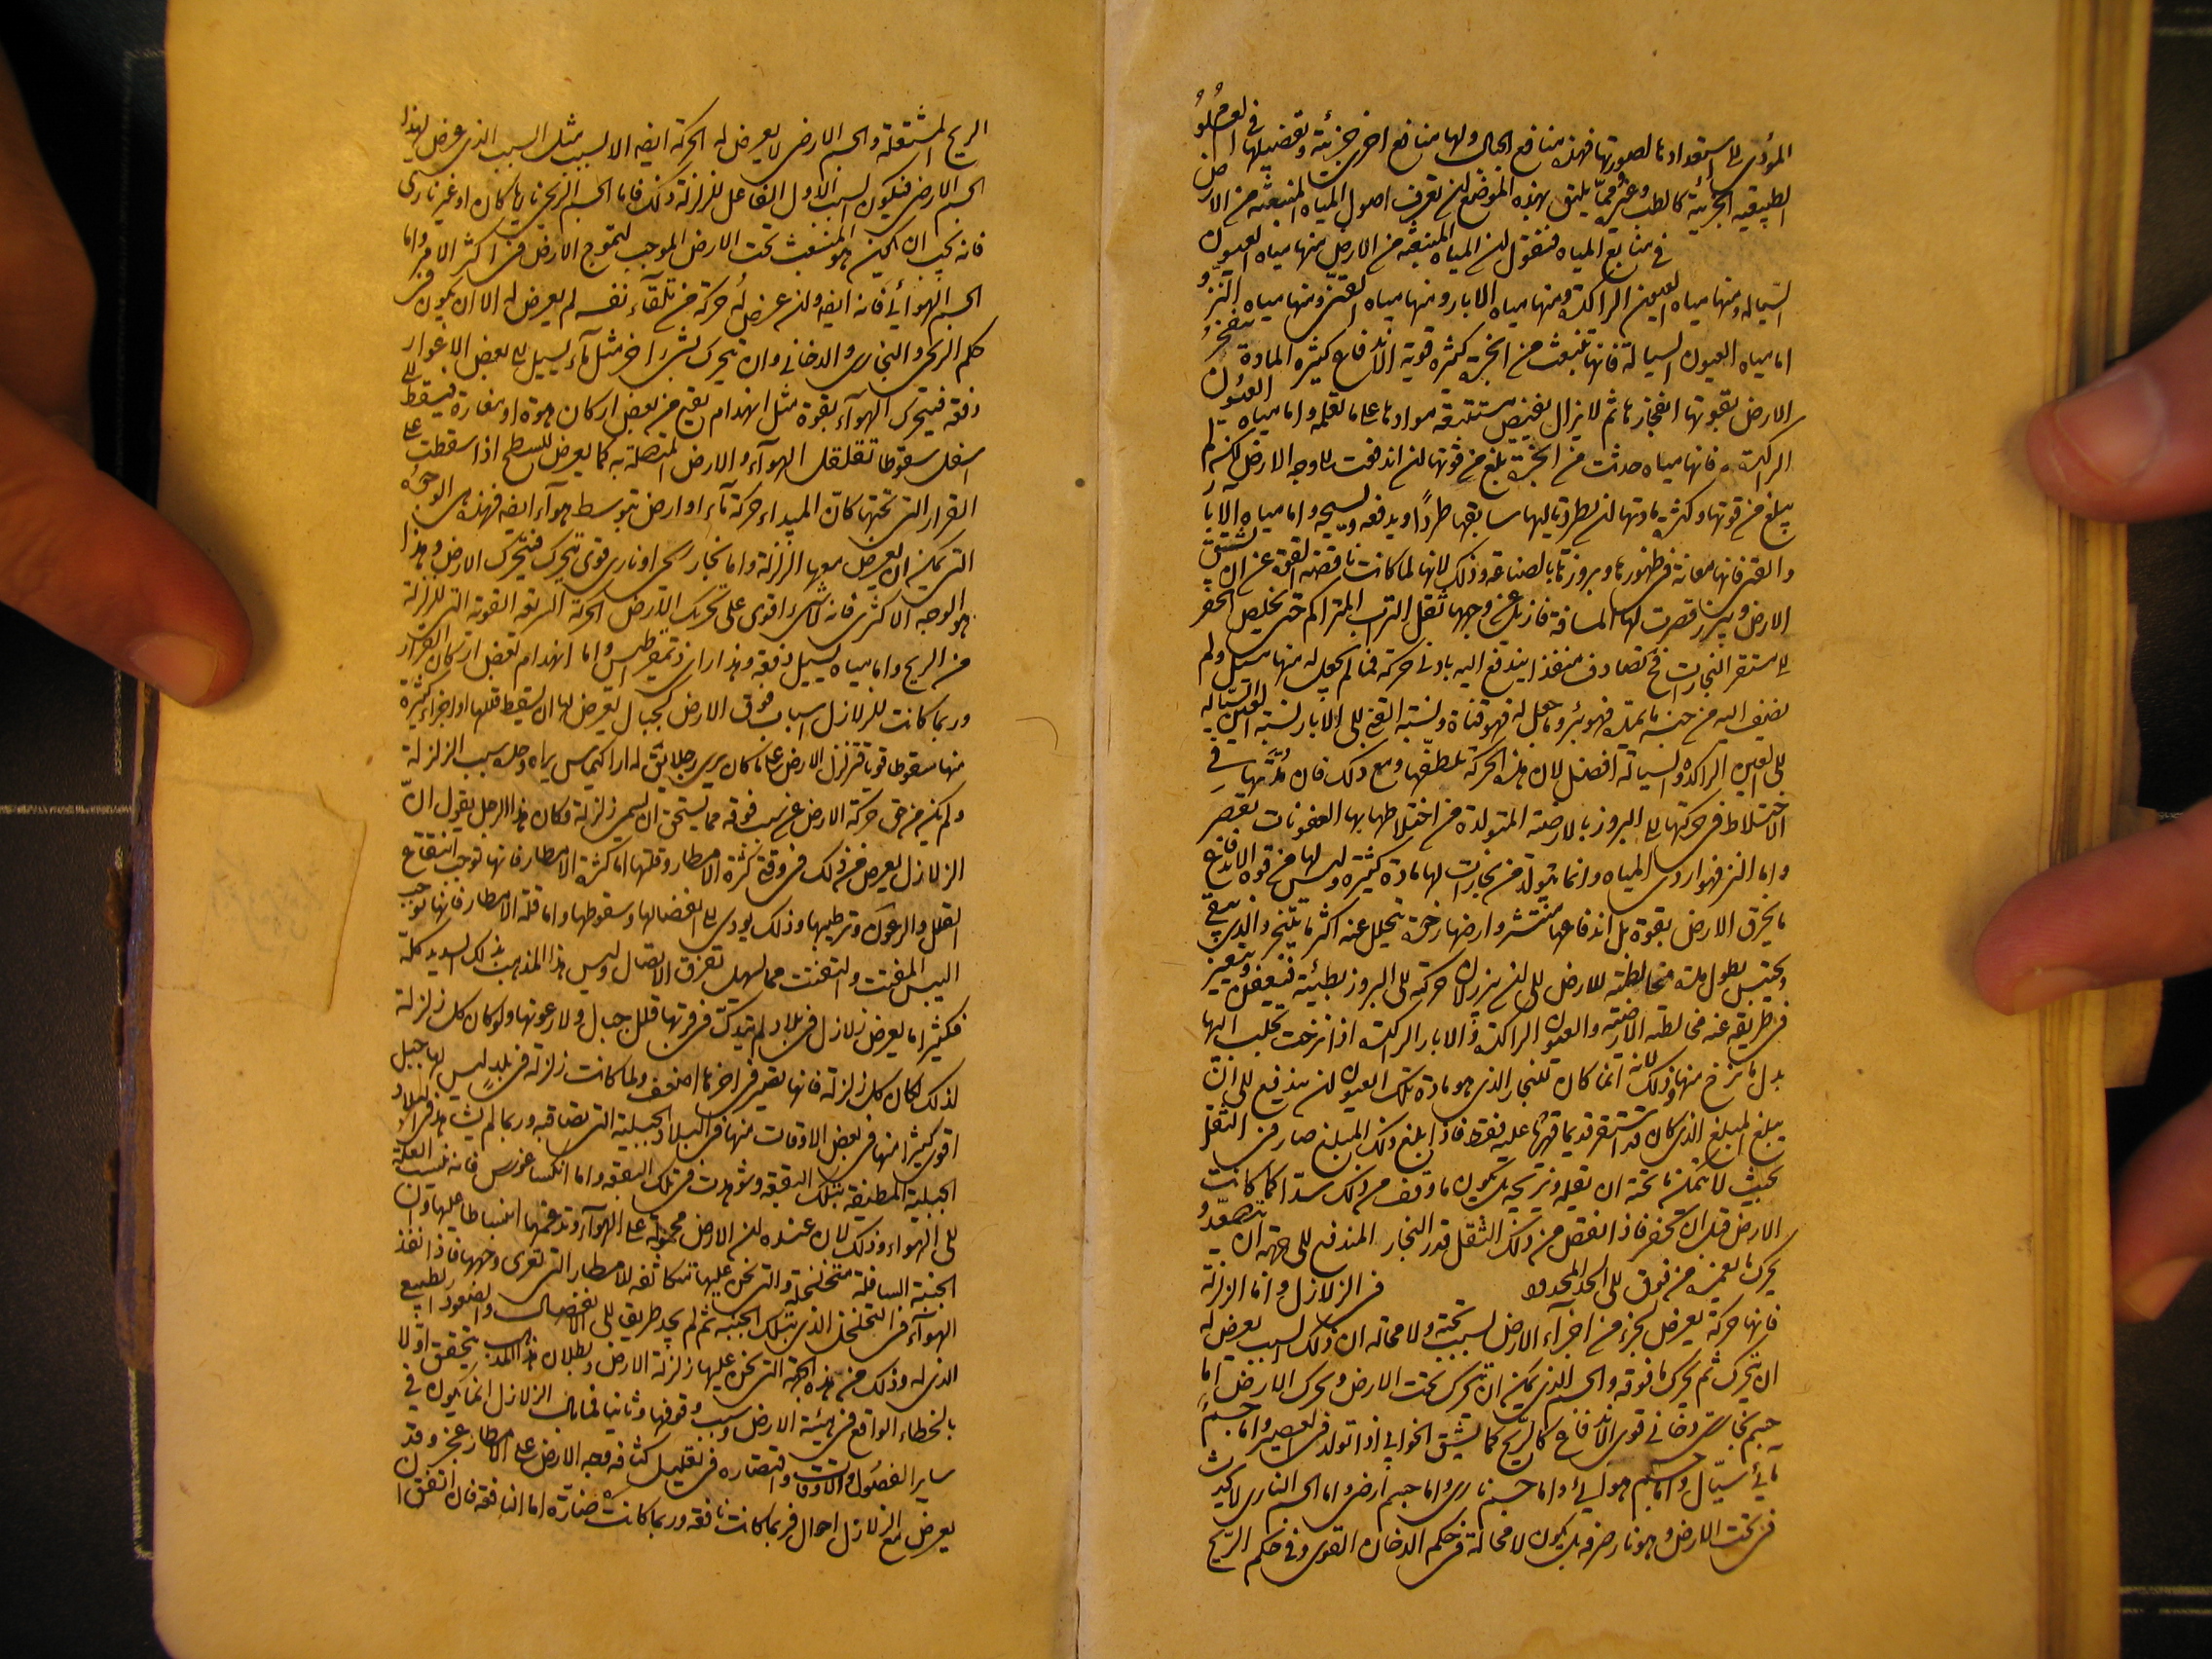 المؤدى الى استعدادها لصورتها فهذه منافع الجبال ولها منافع اخرى جزئية وتفصيلها فى العلوم
الطبيعية الجزئية كالطب وغيره ومما يليق بهذه الموضع ان تعرف اصول المياه المنبعثة من الارض
فى منابع المياه فنقول ان المياه المنبعثة من الارض منها مياه العيون
السيالة ومنها مياه العيون الراكدة ومنها مياه الابار ومنها مياه القنى ومنها مياه النز و
اما مياه العيون السيالة فانها تنبعث من ابخرة كثيرة قوية الاندفاع كثيرة المادة تفجر
الارض بقوتها انفجارها ثم لا يزال يفيض مستتبعة موادها على ما تعلمه واما مياه العيون
الراكدة فانها مياه حدثت من ابخرة بلغ من قوتها ان اندفعت الى وجه الارض لكنه لم
يبلغ من قوتها وكثرة مادتها ان يطرد تاليها سابقها طردا ويدفعه ويسيحه واما مياه الابار
والقنى فانها معانة فى ظهورها وبروزها بالصناعة وذلك لانها لما كانت ناقصة القوة عن ان تشق
الارض وتبرز قصرت لها المسافة فازيل عن وجهها ثقل التراب المتراكم حتى يخلص الحفر
الى مستقر البخارات فح تصادف منفذا يندفع اليه بادنى حركة فما لم يجعل له منها مسيل ولم
يضف اليه من جنسه ما يمده فهو بئر وما جعل له فهو قناة ونسبة القنى الى الابار نسبة العين السيالة
الى العين الراكدة والسيالة افضل لان هذه الحركة تلطفها ومع ذلك فان
الاختلاط فى حركتها الى البروز بالارضية المتولدة من اختلاطها بها العفونات تقصر
واما النز فهو اردى المياه وانما يتولد من بخارات لها مادة كثيرة وليس لها من قوة الاندفاع
ما يخرق الارض بقوة بل اندفاعها منتشر وارضها رخوة يتحلل عنه اكثر ما يتبخر والذى يبقى
ويحتبس يطول مدة مخالطته للارض الى ان يبرز لان حركته الى البروز بطيئة فيتعفن ويتغير
فى طريقه عند مخالطته الارضية والعيون الراكدة والابار الراكدة اذا نزحت تحلب اليها
بدل ما نزح منها وذلك لانه انما كان للبخار الذى هو مادة تلك العيون ان يندفع الى ان
يبلغ المبلغ الذى كان قد استقر قديما عليه فقط فاذا بلغ ذلك المبلغ صار من الثقل
بحيث لا يمكن ما تحته ان يقله ويزيحه بل يكون ما وقف من ذلك سدا كما كانت
الارض قبل ان تحفر فاذا انفصل من ذلك الثقل قدر البخار المندفع الى جهة ان يتصعد و
يحرك ما يغمزه من فوق الى الحد المحدود فى الزلازل واما الزلزلة
فانها حركة يعرض لجزء من اجزاء الارض لسبب تحته ولا محالة ان ذلك السبب يعرض له
ان يتحرك ثم يحرك ما فوقه والجسم الذى يمكن ان يتحرك تحت الارض ويحرك الارض اما
جسم بخارى دخانى قوى الاندفاع كالريح كما يشق الخوابى اذا تولد فى العصير واما جسم
مائى سيال واما جسم هوائى واما جسم نارى واما جسم ارضى واما الجسم النارى لا يحدث
فى تحت الارض وهو نار صرفه بل يكون لا محالة فى حكم الدخان القوى وفى حكم الريح
الريح المشتعلة والجسم الارضى لا يعرض له الحركة ايضه الا لسبب مثل السبب الذى عرض لهذا
الجسم الارضى فيكون السبب الاول الفاعل للزلزلة ذلك فاما الجسم الريحى ناريا كان او غير نارى
فانه يجب ان يكون هو المنبعث تحت الارض الموجب لتموج الارض فى اكثر الامر واما
الجسم الهوائى فانه ايضه ولن عرض له حركة من تلقاء نفسه لم يعرض له الا ان يكون فى
حكم الريح والبخارى والدخانى وان يتحرك بشىء اخر مثل ماء يسيل الى بعض الاغوار
دفعة فيتحرك الهواء بقوة مثل انهدام يقع من بعض اركان هوة او مغارة فيسقط الى
اسفل سقوطا تقلقل الهواء والارض المتصلة به كما يعرض للسطح اذا سقطت على
القرار التى تحتها كان المبداء حركة ماء او ارض بتوسط هواء ايضه فهذه هى الوجوه
التى يمكن ان يعرض معها الزلزلة واما بخار ريحى او نارى قوى يتحرك فيتحرك الارض وهذا
هو الوجه الاكثرى فانه لا شىء اقوى على تحريك الارض الحركة السريعة القوية التى للزلزلة
من الريح واما مياه يسيل دفعة وهذا راى ذيمقراطيس واما انهدام بعض اركان القرار
وربما كانت للزلازل اسباب فوق الارض كجبال يعرض لها ان يسقط قللها او اجزاء كثيرة
منها سقوطا قويا فتزلزل الارض على ما كان يرى رجل يق له اراكيماس يراه وحده سبب الزلزلة
ولم يكن من حق حركة الارض عن سبب فوقه مما يستحق ان يسمى زلزلة وكان هذا الرجل يقول ان
الزلازل يعرض من ذلك فى وقتى كثرة الامطار وقلتها اما كثرة الامطار فانها توجب انتقاع
القلل والرعون وترطيبها وذلك يودى الى انفصالها وسقوطها واما قلة الامطار فانها توجب
اليبس المفتت والتفتت مما يسهل تفرق الاتصال وليس هذا المذهب بذلك السديد كله
فكثيرا ما يعرض زلازل فى بلاد لم يتدكدك فى قربها قلل جبال ولا رعونها ولو كان كل زلزلة
لذلك لكان كل زلزلة فانها تصير فى اخرها اضعف ولما كانت زلزلة فى بلد ليس لها جبل
اقوى كثيرا منها فى بعض الاوقات منها فى البلاد الجبلية التى تصاقبه وربما لم يشاهد فى البلاد
الجبلية المطيفة بتلك البقعة وشوهدت فى تلك البقعة واما انكساغورس فانه نسب العلة
الى الهواء وذلك لان عنده ان الارض محمولة على الهواء وتدغمها انبساطا عليها وان
الجنبة السافلة متخلخلة والتى نحن عليها متكاثفة للامطار التى تعرى وجهها فاذا نفذ
الهواء فى التخلخل الذى بتلك الجنبة ثم لم يجد طريقا الى الانفصال والصعود الطبيع
الذى له وذلك من هذه الجهة التى نحن عليها زلزلة الارض وبطلان هذا المذهب يتحقق اولا
بالخطاء الواقع فى هيئة الارض وسبب وقوفها وثانيا فما بال الزلازل انما يكون فى
ساير الفصول والاوقات واقتصاره فى تعليل كثافة وجه الارض على الامطار عجز وقد
يعرض مع الزلازل احوال فربما كانت نافعة وربما كانت ضارة اما النافعة فان اتفق ان